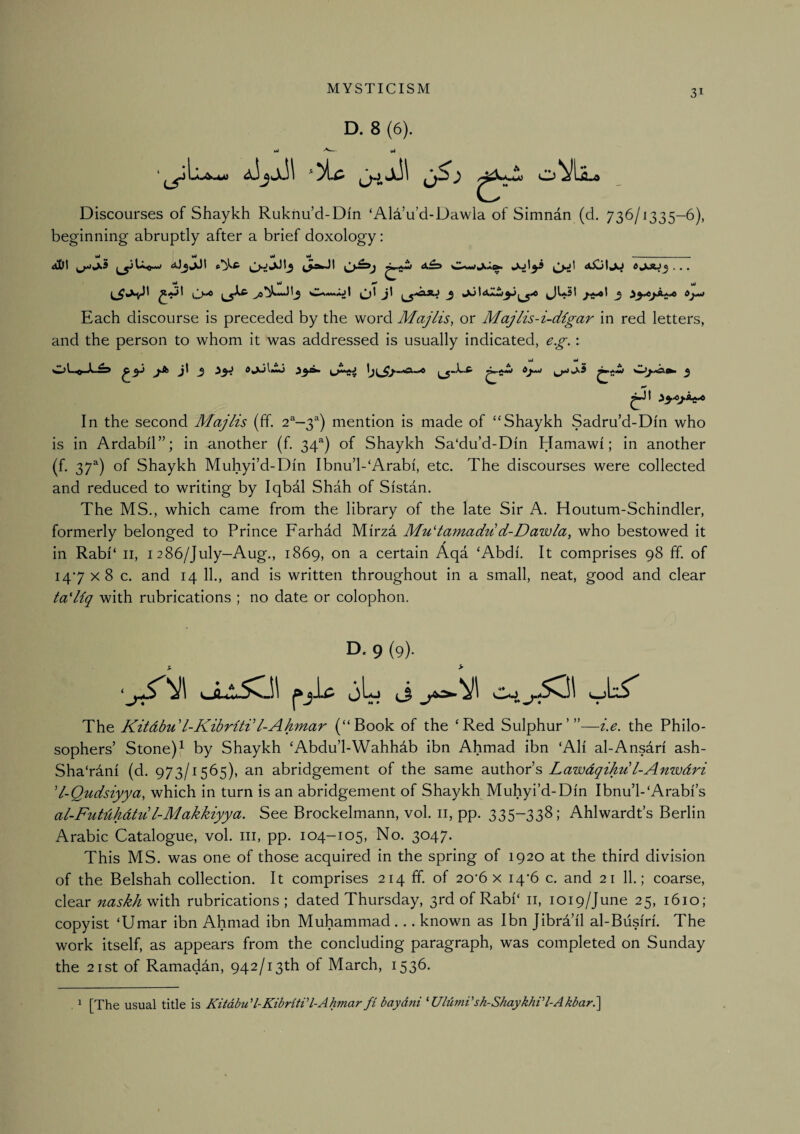 MYSTICISM 31
D. 8 (6).
مقالات شیخ رکن الدین علاء الدولة سمنانی،
Discourses of Shaykh Ruknu’d-Dín ‘Alá’u’d-Dawla of Simnán (d. 736/1335–6),
beginning abruptly after a brief doxology:
... وبعده بدانکه این فواید چندیست که شیخ رکن الحق والدین علاء الدوله سمنانی قدّس الله
سره میفرمود و امیر اقبال می‌نوشته‌اند و بعضی از آن اینست والسلام علی من اتبع الهدی
Each discourse is preceded by the word Majlis, or Majlis-i-dígar in red letters,
and the person to whom it was addressed is usually indicated, e.g.:
و حضرت شیخ قدّس سرّه شیخ علی مصری را پیش خود نشانده بود و از هر نوع کلمات
میفرمود الخ
In the second Majlis (ff. 2ª–3ª) mention is made of “Shaykh Ṣadru’d-Dín who
is in Ardabíl”; in another (f. 34ª) of Shaykh Sa‘du’d-Dín Ḥamawí; in another
(f. 37ª) of Shaykh Muḥyi’d-Dín Ibnu’l-‘Arabí, etc. The discourses were collected
and reduced to writing by Iqbál Sháh of Sístán.
The MS., which came from the library of the late Sir A. Houtum-Schindler,
formerly belonged to Prince Farhád Mírzá Mu‘tamadu’d-Dawla, who bestowed it
in Rabí‘ II, 1286/July–Aug., 1869, on a certain Áqá ‘Abdí. It comprises 98 ff. of
14·7 × 8 c. and 14 ll., and is written throughout in a small, neat, good and clear
ta‘líq with rubrications ; no date or colophon.
D. 9 (9).
کتاب الکبریت الأحمر فی بیان علوم الکشف الأکبر،
The Kitábu’l-Kibríti’l-Aḥmar (“Book of the ‘Red Sulphur’”—i.e. the Philo-
sophers’ Stone)¹ by Shaykh ‘Abdu’l-Wahháb ibn Aḥmad ibn ‘Alí al-Anṣárí ash-
Sha‘rání (d. 973/1565), an abridgement of the same author’s Lawáqiḥu’l-Anwári
’l-Qudsiyya, which in turn is an abridgement of Shaykh Muḥyi’d-Dín Ibnu’l-‘Arabí’s
al-Futúḥátu’l-Makkiyya. See Brockelmann, vol. II, pp. 335–338; Ahlwardt’s Berlin
Arabic Catalogue, vol. III, pp. 104–105, No. 3047.
This MS. was one of those acquired in the spring of 1920 at the third division
of the Belshah collection. It comprises 214 ff. of 20·6 × 14·6 c. and 21 ll.; coarse,
clear naskh with rubrications ; dated Thursday, 3rd of Rabí‘ II, 1019/June 25, 1610;
copyist ‘Umar ibn Aḥmad ibn Muḥammad... known as Ibn Jibrá’íl al-Búṣírí. The
work itself, as appears from the concluding paragraph, was completed on Sunday
the 21st of Ramaḍán, 942/13th of March, 1536.
¹ [The usual title is Kitábu’l-Kibríti’l-Aḥmar fí bayáni ‘Ulúmi’sh-Shaykhi’l-Akbar.]